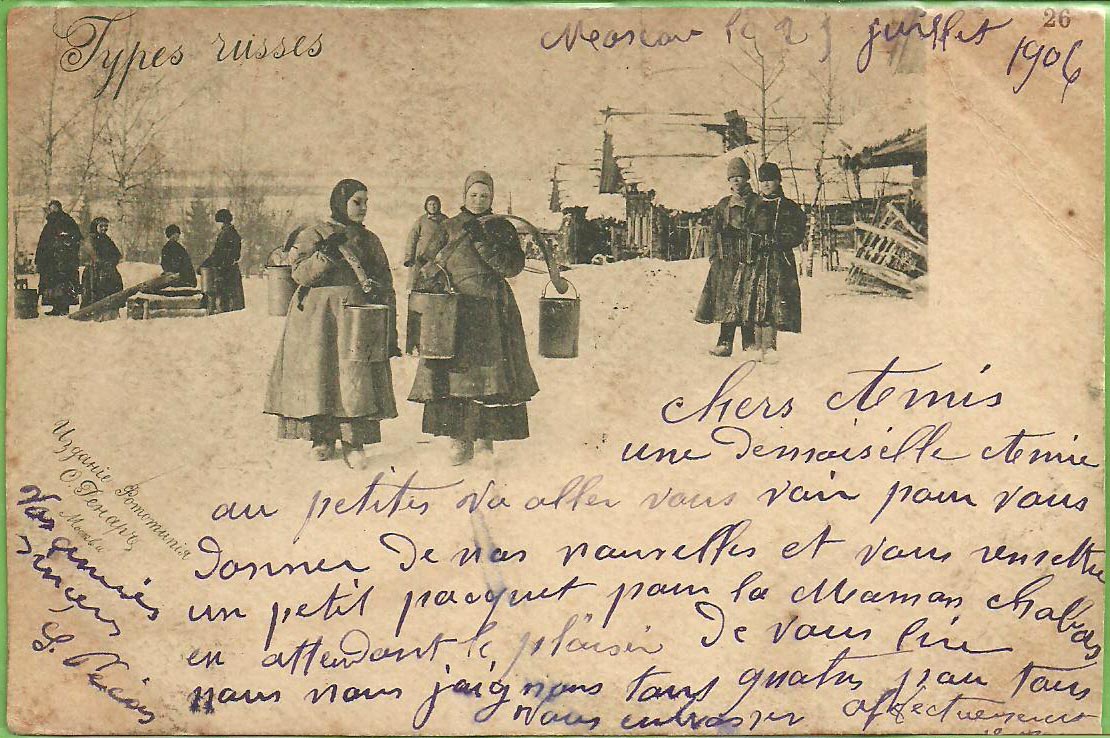 Types russes
26
Moscou le 2 juillet
1906
Chers Amis
une Demoiselle Amie
au petites va aller vous voir pour vous
Donner De nos nouvelles et vous remettre
un petit pacquet pour la Maman
en attendant le plaisir De vous lire
nous nous joignons tous quatre pour tous
vous embrasser affectueusement
Vos amis
sinceres
Изданіе Фототипія
О. Ренаръ,
Москва